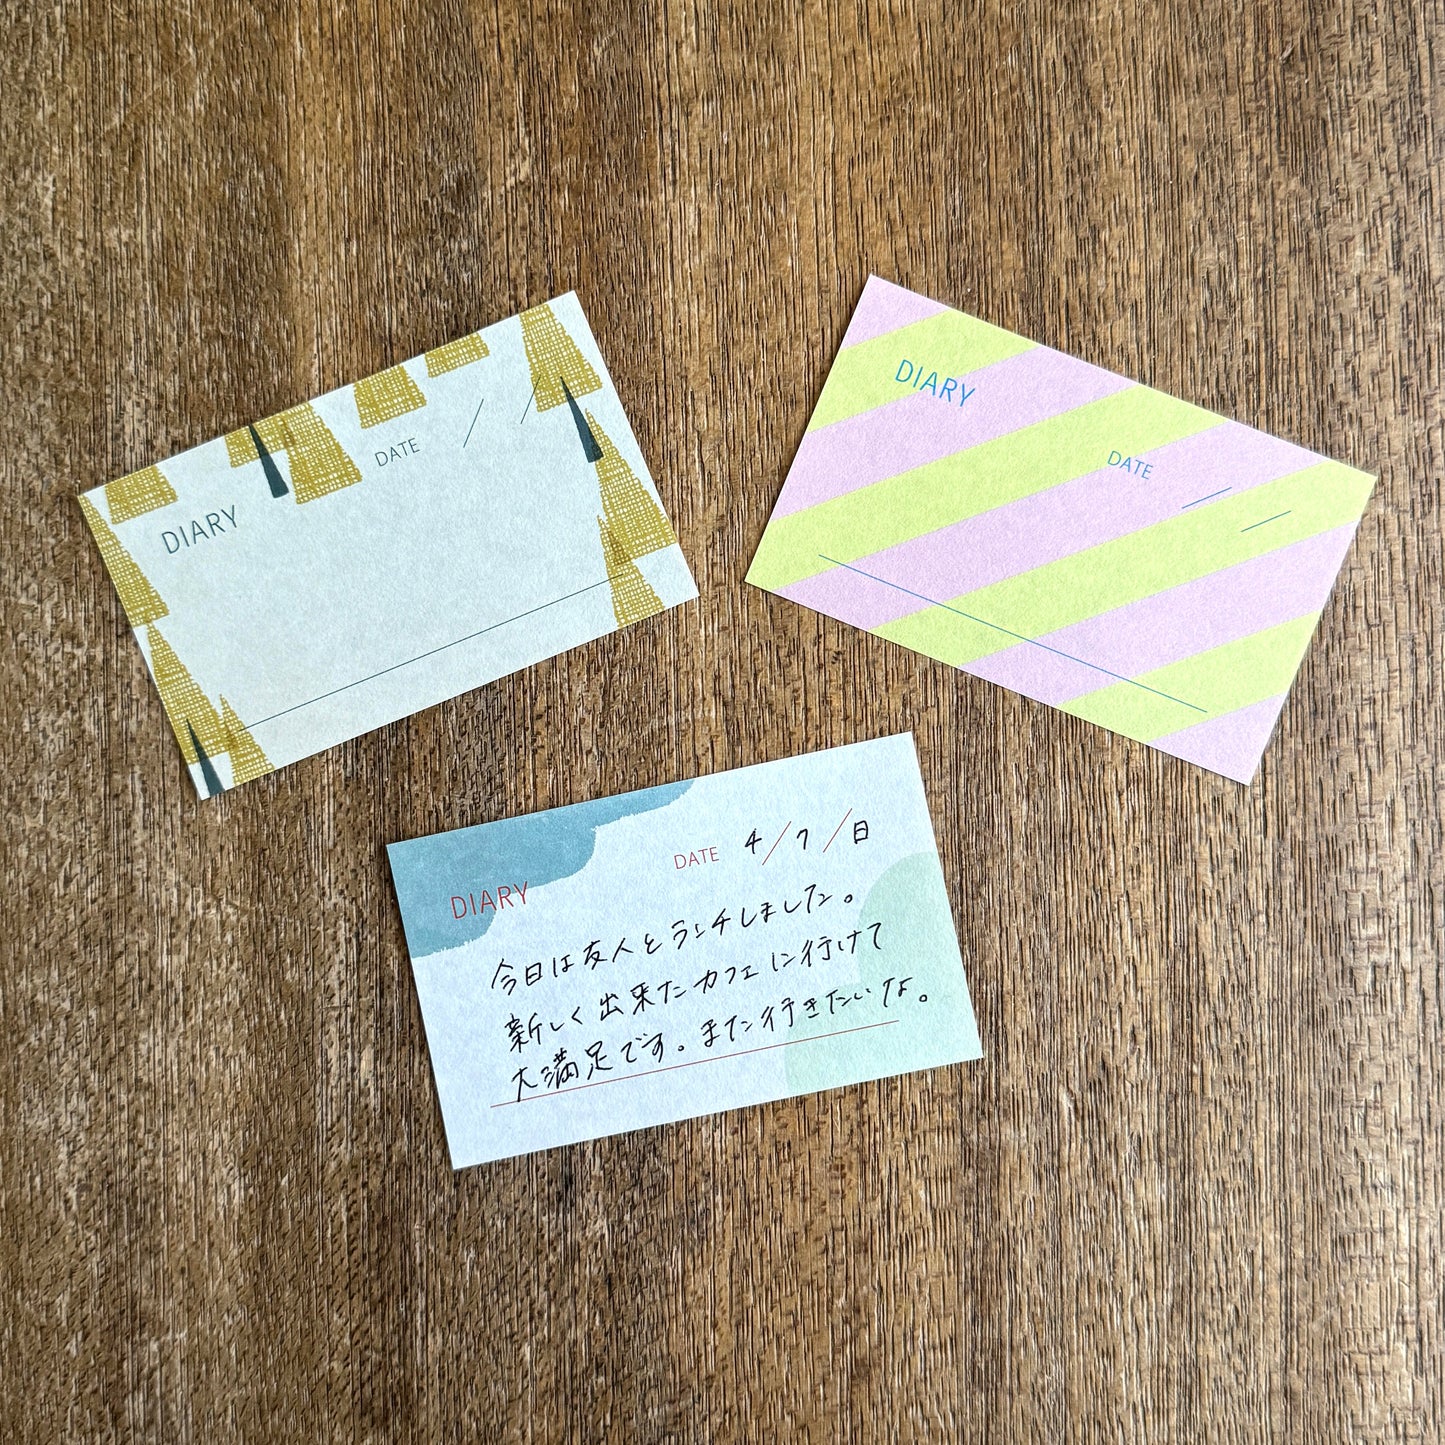 DIARY
DATE / /
DIARY
DATE / /
DIARY
DATE 4/7/日
今日は友人とランチしました。
新しく出来たカフェに行けて
大満足です。また行きたいな。